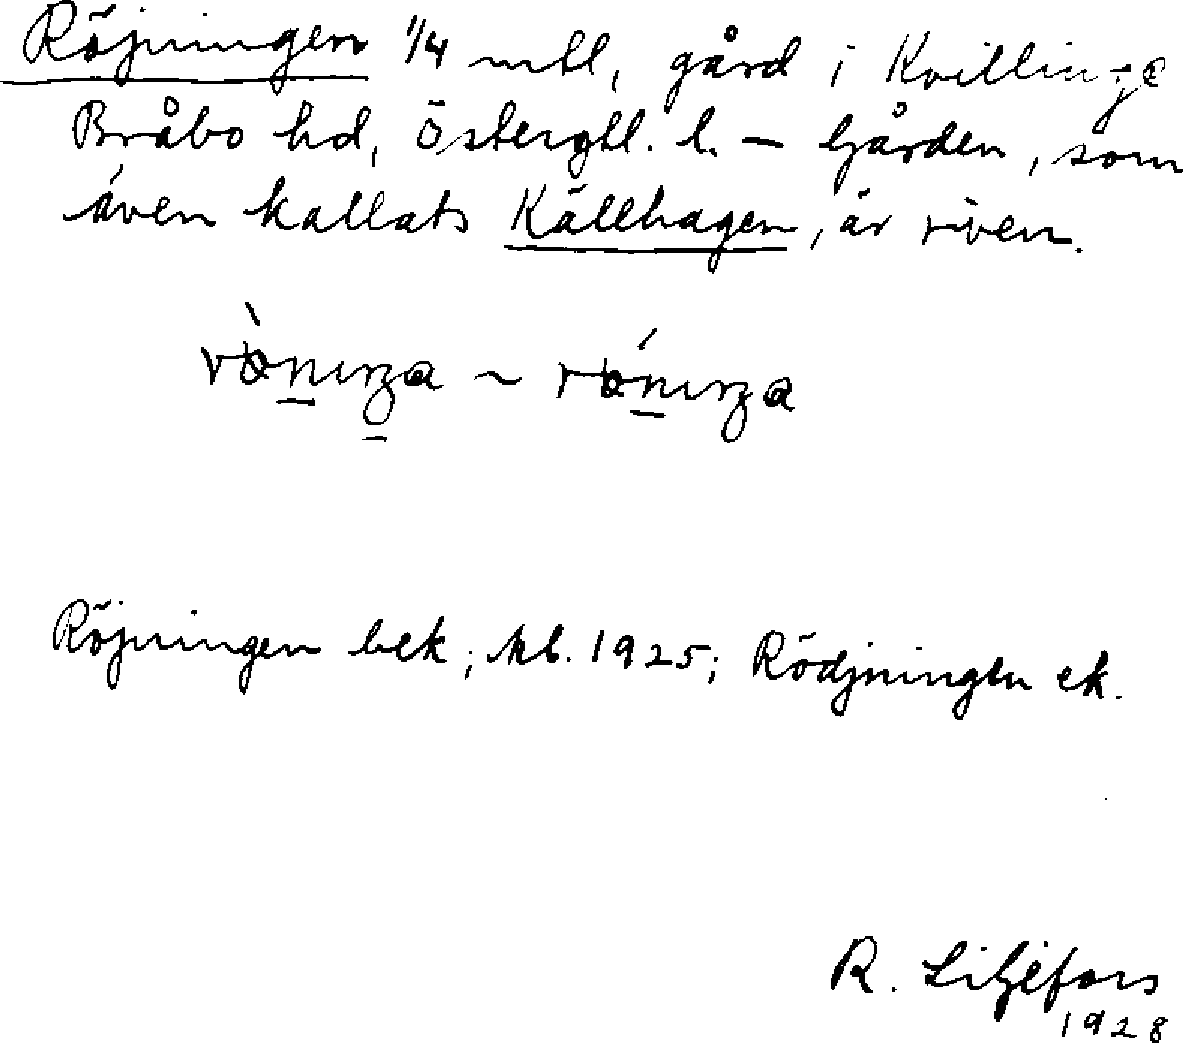 Röjningen 1/4 mtl, gård i Kvillinge
Bråbo hd, Östergtl. l. – Gården, som
även kallats Källhagen, är riven.
Röjningen bek; kb. 1925; Rödjningen ek.
R. Liljefors
1928